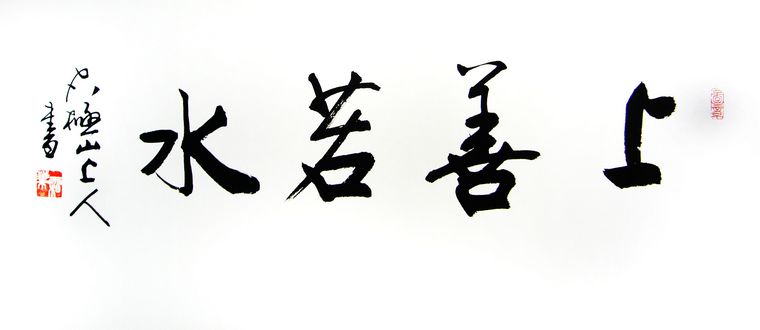 上善若水
極山上人
書